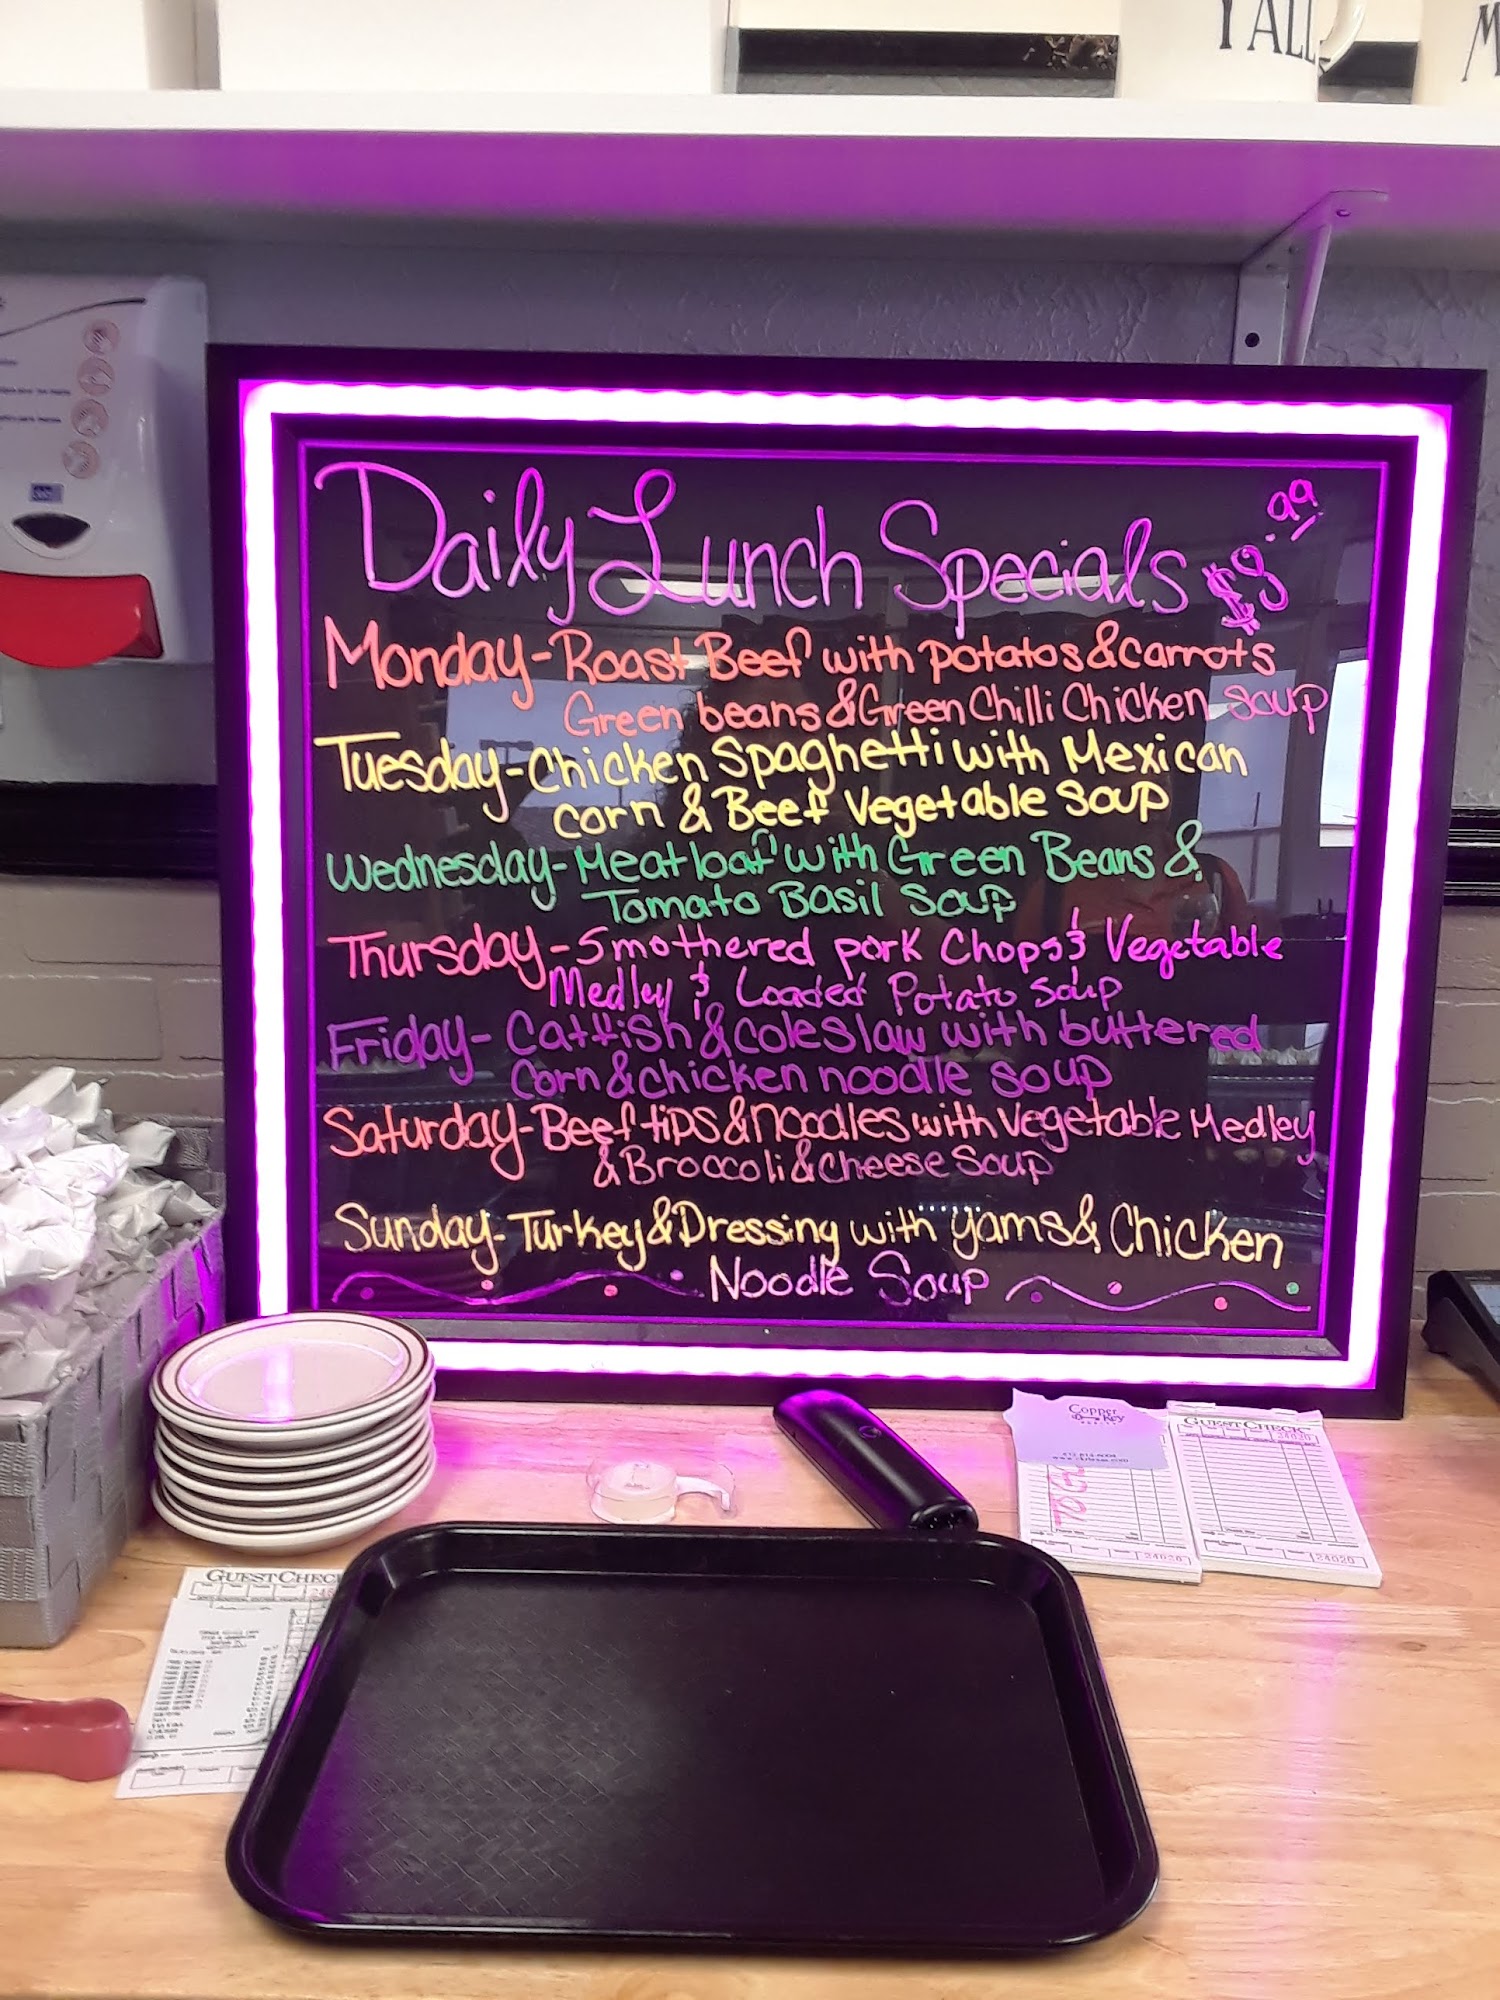 Y'ALL
Daily Lunch Specials $8.99
Monday-Roast Beef with potatos & carrots
Green beans & Green Chilli Chicken Soup
Tuesday-Chicken Spaghetti with Mexican
Corn & Beef Vegetable Soup
Wednesday-Meatloaf with Green Beans &
Tomato Basil Soup
Thursday-Smothered pork Chops & Vegetable
Medley & Loaded Potato Soup
Friday-Catfish & coleslaw with buttered
Corn & chicken noodle soup
Saturday-Beef tips & Noodles with Vegetable Medley
& Broccoli & Cheese Soup
Sunday-Turkey & Dressing with yams & Chicken
Noodle Soup
Copper
Key
GUEST CHECK
24020
TOGO
24020
24020
GUEST CHECK